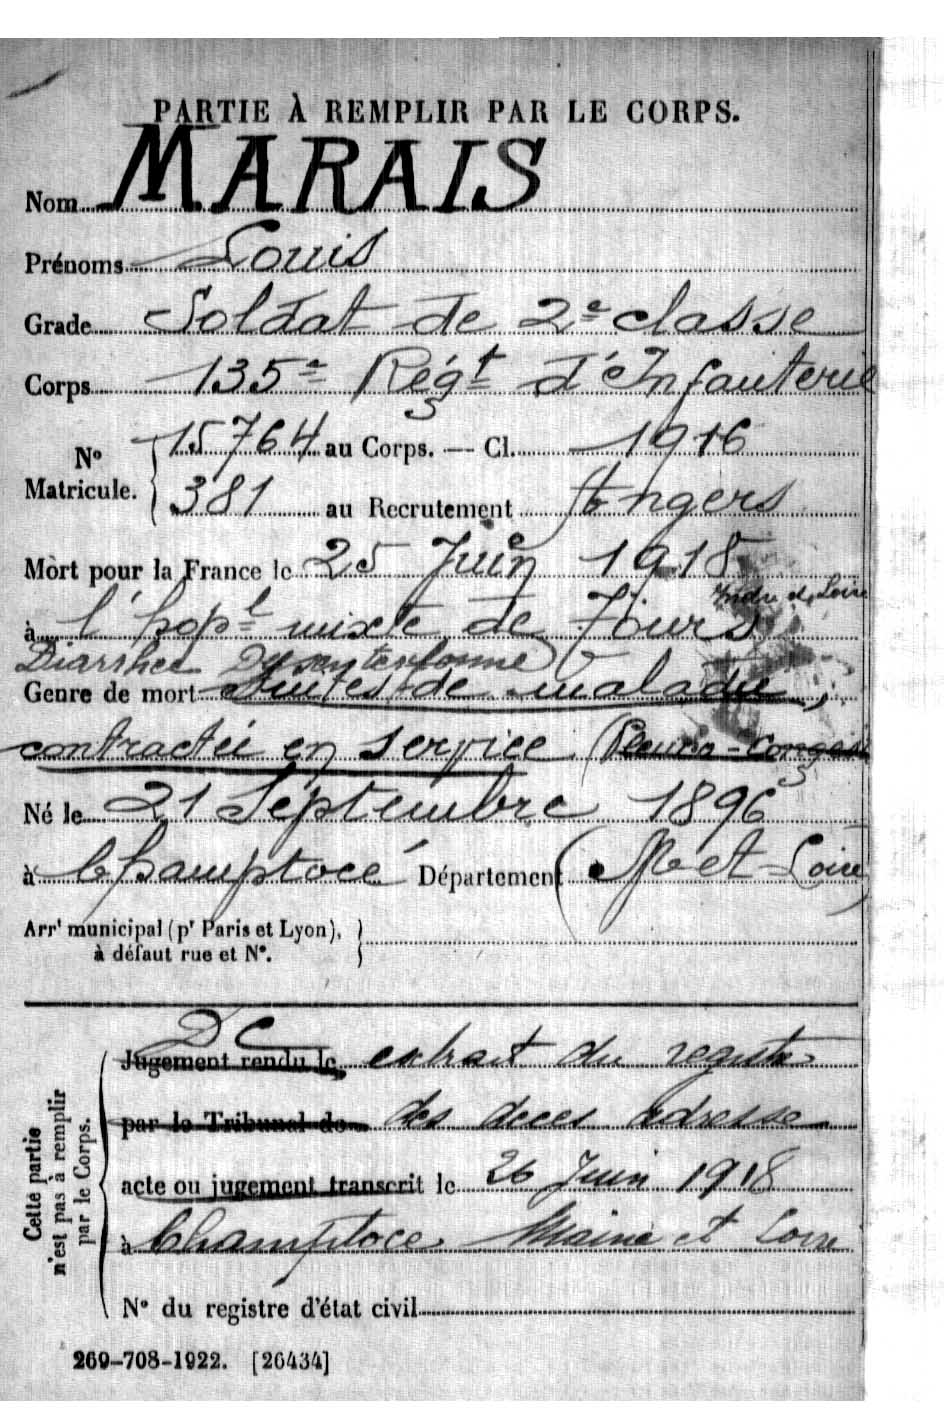 PARTIE À REMPLIR PAR LE CORPS.
Nom MARAIS
Prénoms Louis
Grade Soldat de 2e classe
Corps 135e Régt d'Infanterie
No Matricule. 15764 au Corps. — Cl. 1916
381 au Recrutement Angers
Mort pour la France le 25 Juin 1918
Indre et Loire
à l'hopl mixte de Tours
Diarrhée
Genre de mort Suites de maladie
contractée en service (Pleuro-Conges
Né le 21 Septembre 1896
à Champtocé Département M et Loire
Arrt municipal (pr Paris et Lyon),
à défaut rue et No.
Cette partie
n'est pas à remplir
par le Corps.
DC
Jugement rendu le extrait du registre
par le Tribunal de des deces adresse
acte ou jugement transcrit le 26 Juin 1918
à Champtoce Maine et Loire
No du registre d'état civil
269-708-1922. [26434]